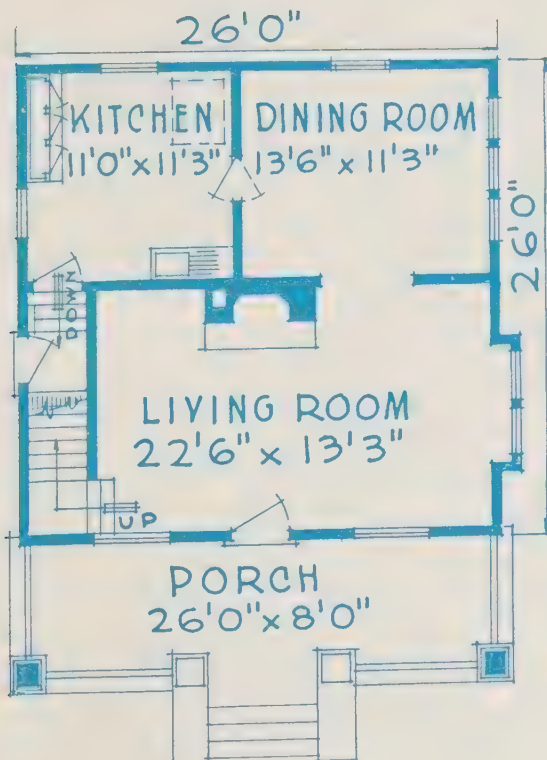 26'0"
KITCHEN
11'0" x 11'3"
DINING ROOM
13'6" x 11'3"
26'0"
DOWN
LIVING ROOM
22'6" x 13'3"
UP
PORCH
26'0" x 8'0"